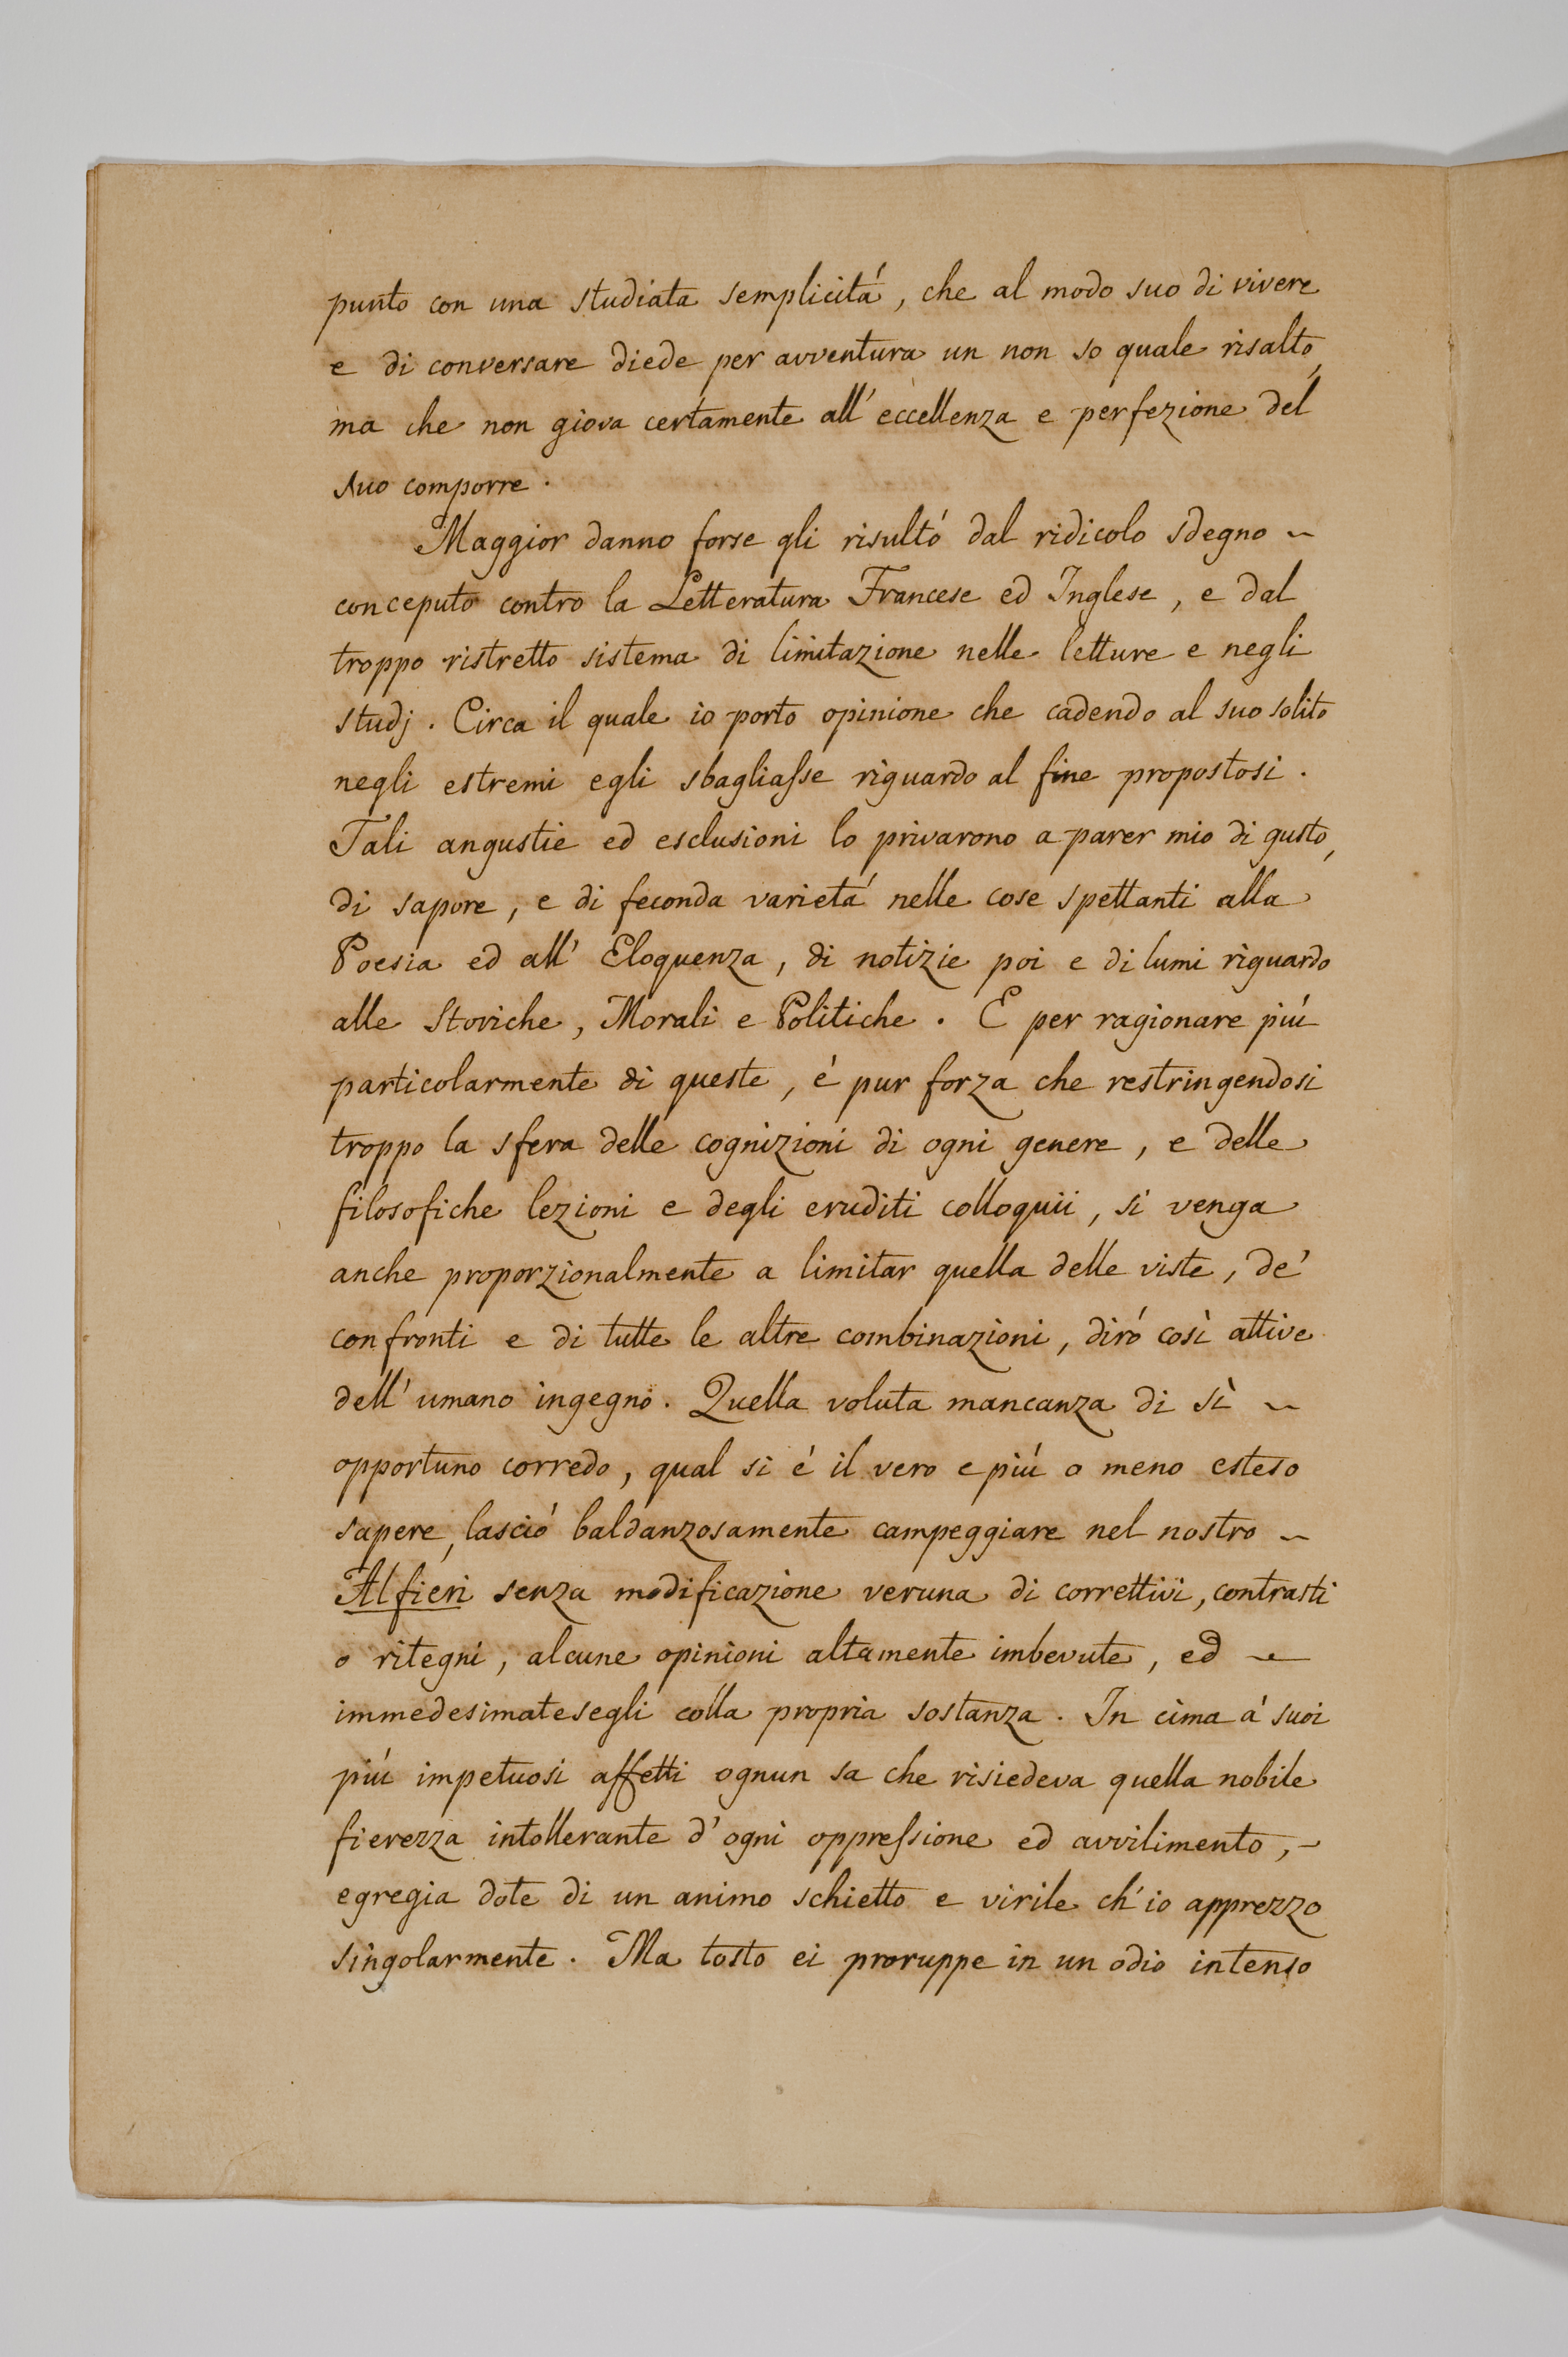 punto con una studiata semplicitá, che al modo suo di vivere
e di conversare diede per avventura un non so quale risalto,
ma che non giova certamente all'eccellenza e perfezione del
suo comporre.
Maggior danno forse gli risultó dal ridicolo sdegno ~
conceputo contro la Letteratura Francese ed Inglese, e dal
troppo ristretto sistema di limitazione nelle letture e negli
studj. Circa il quale io porto opinione che cadendo al suo solito
negli estremi egli sbagliaſse riguardo al fine propostosi.
Tali angustie ed esclusioni lo privarono a parer mio di gusto,
di sapore, e di feconda varietá nelle cose spettanti alla
Poesia ed all' Eloquenza, di notizie poi e di lumi riguardo
alle Storiche, Morali e Politiche. E per ragionare piú
particolarmente di queste, é pur forza che restringendosi
troppo la sfera delle cognizioni di ogni genere, e delle
filosofiche lezioni e degli eruditi colloquii, si venga
anche proporzionalmente a limitar quella delle viste, de'
confronti e di tutte le altre combinazioni, diró così attive
dell'umano ingegno. Quella voluta mancanza di sì ~
opportuno corredo, qual si é il vero e piú o meno esteso
sapere, lasció baldanzosamente campeggiare nel nostro ~
Alfieri senza modificazione veruna di correttivi, contrasti
o ritegni, alcune opinioni altamente imbevute, ed ~
immedesimatesegli colla propria sostanza. In cima á suoi
piú impetuosi affetti ognun sa che risiedeva quella nobile
fierezza intollerante d'ogni oppreſsione ed avvilimento, ~
egregia dote di un animo schietto e virile ch'io apprezzo
singolarmente. Ma tosto ei proruppe in un odio intenso